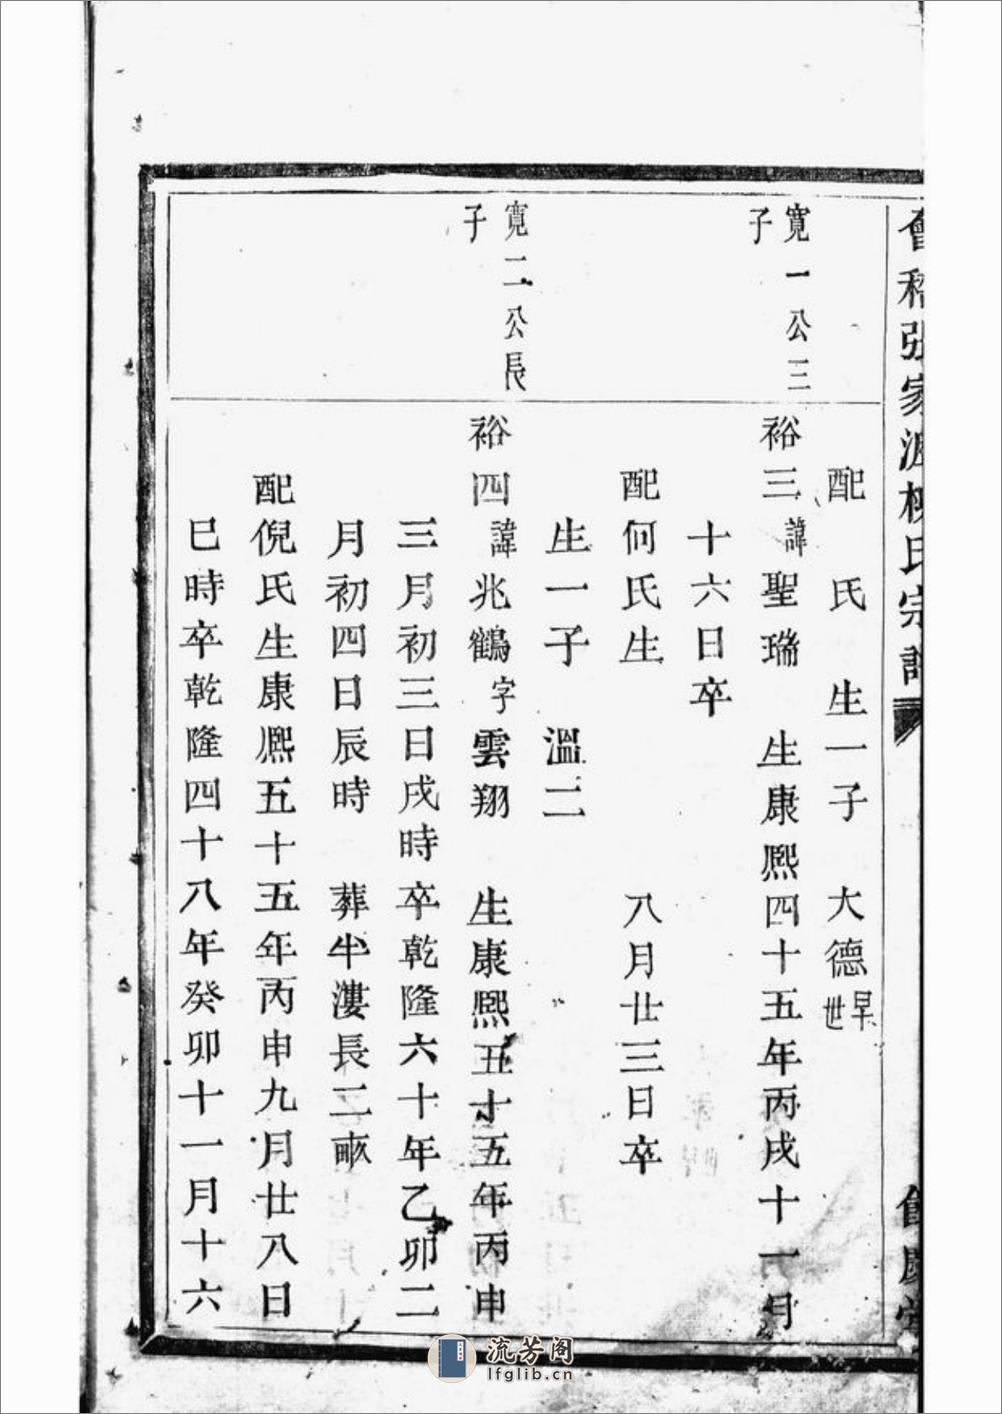 會稽張家漊楊氏宗譜
餘慶堂
配　氏　生一子　大德早世
寬一公三子
裕三諱聖瑞　生康熙四十五年丙戌十一月
十六日卒
配何氏生　八月廿三日卒
生一子　溫二
寬二公長子
裕四諱兆鶴字雲翔　生康熙五十五年丙申
三月初三日戌時卒乾隆六十年乙卯二
月初四日辰時　葬半漊長二畝
配倪氏生康熙五十五年丙申九月廿八日
巳時卒乾隆四十八年癸卯十一月十六
流芳阁
lfglib.cn